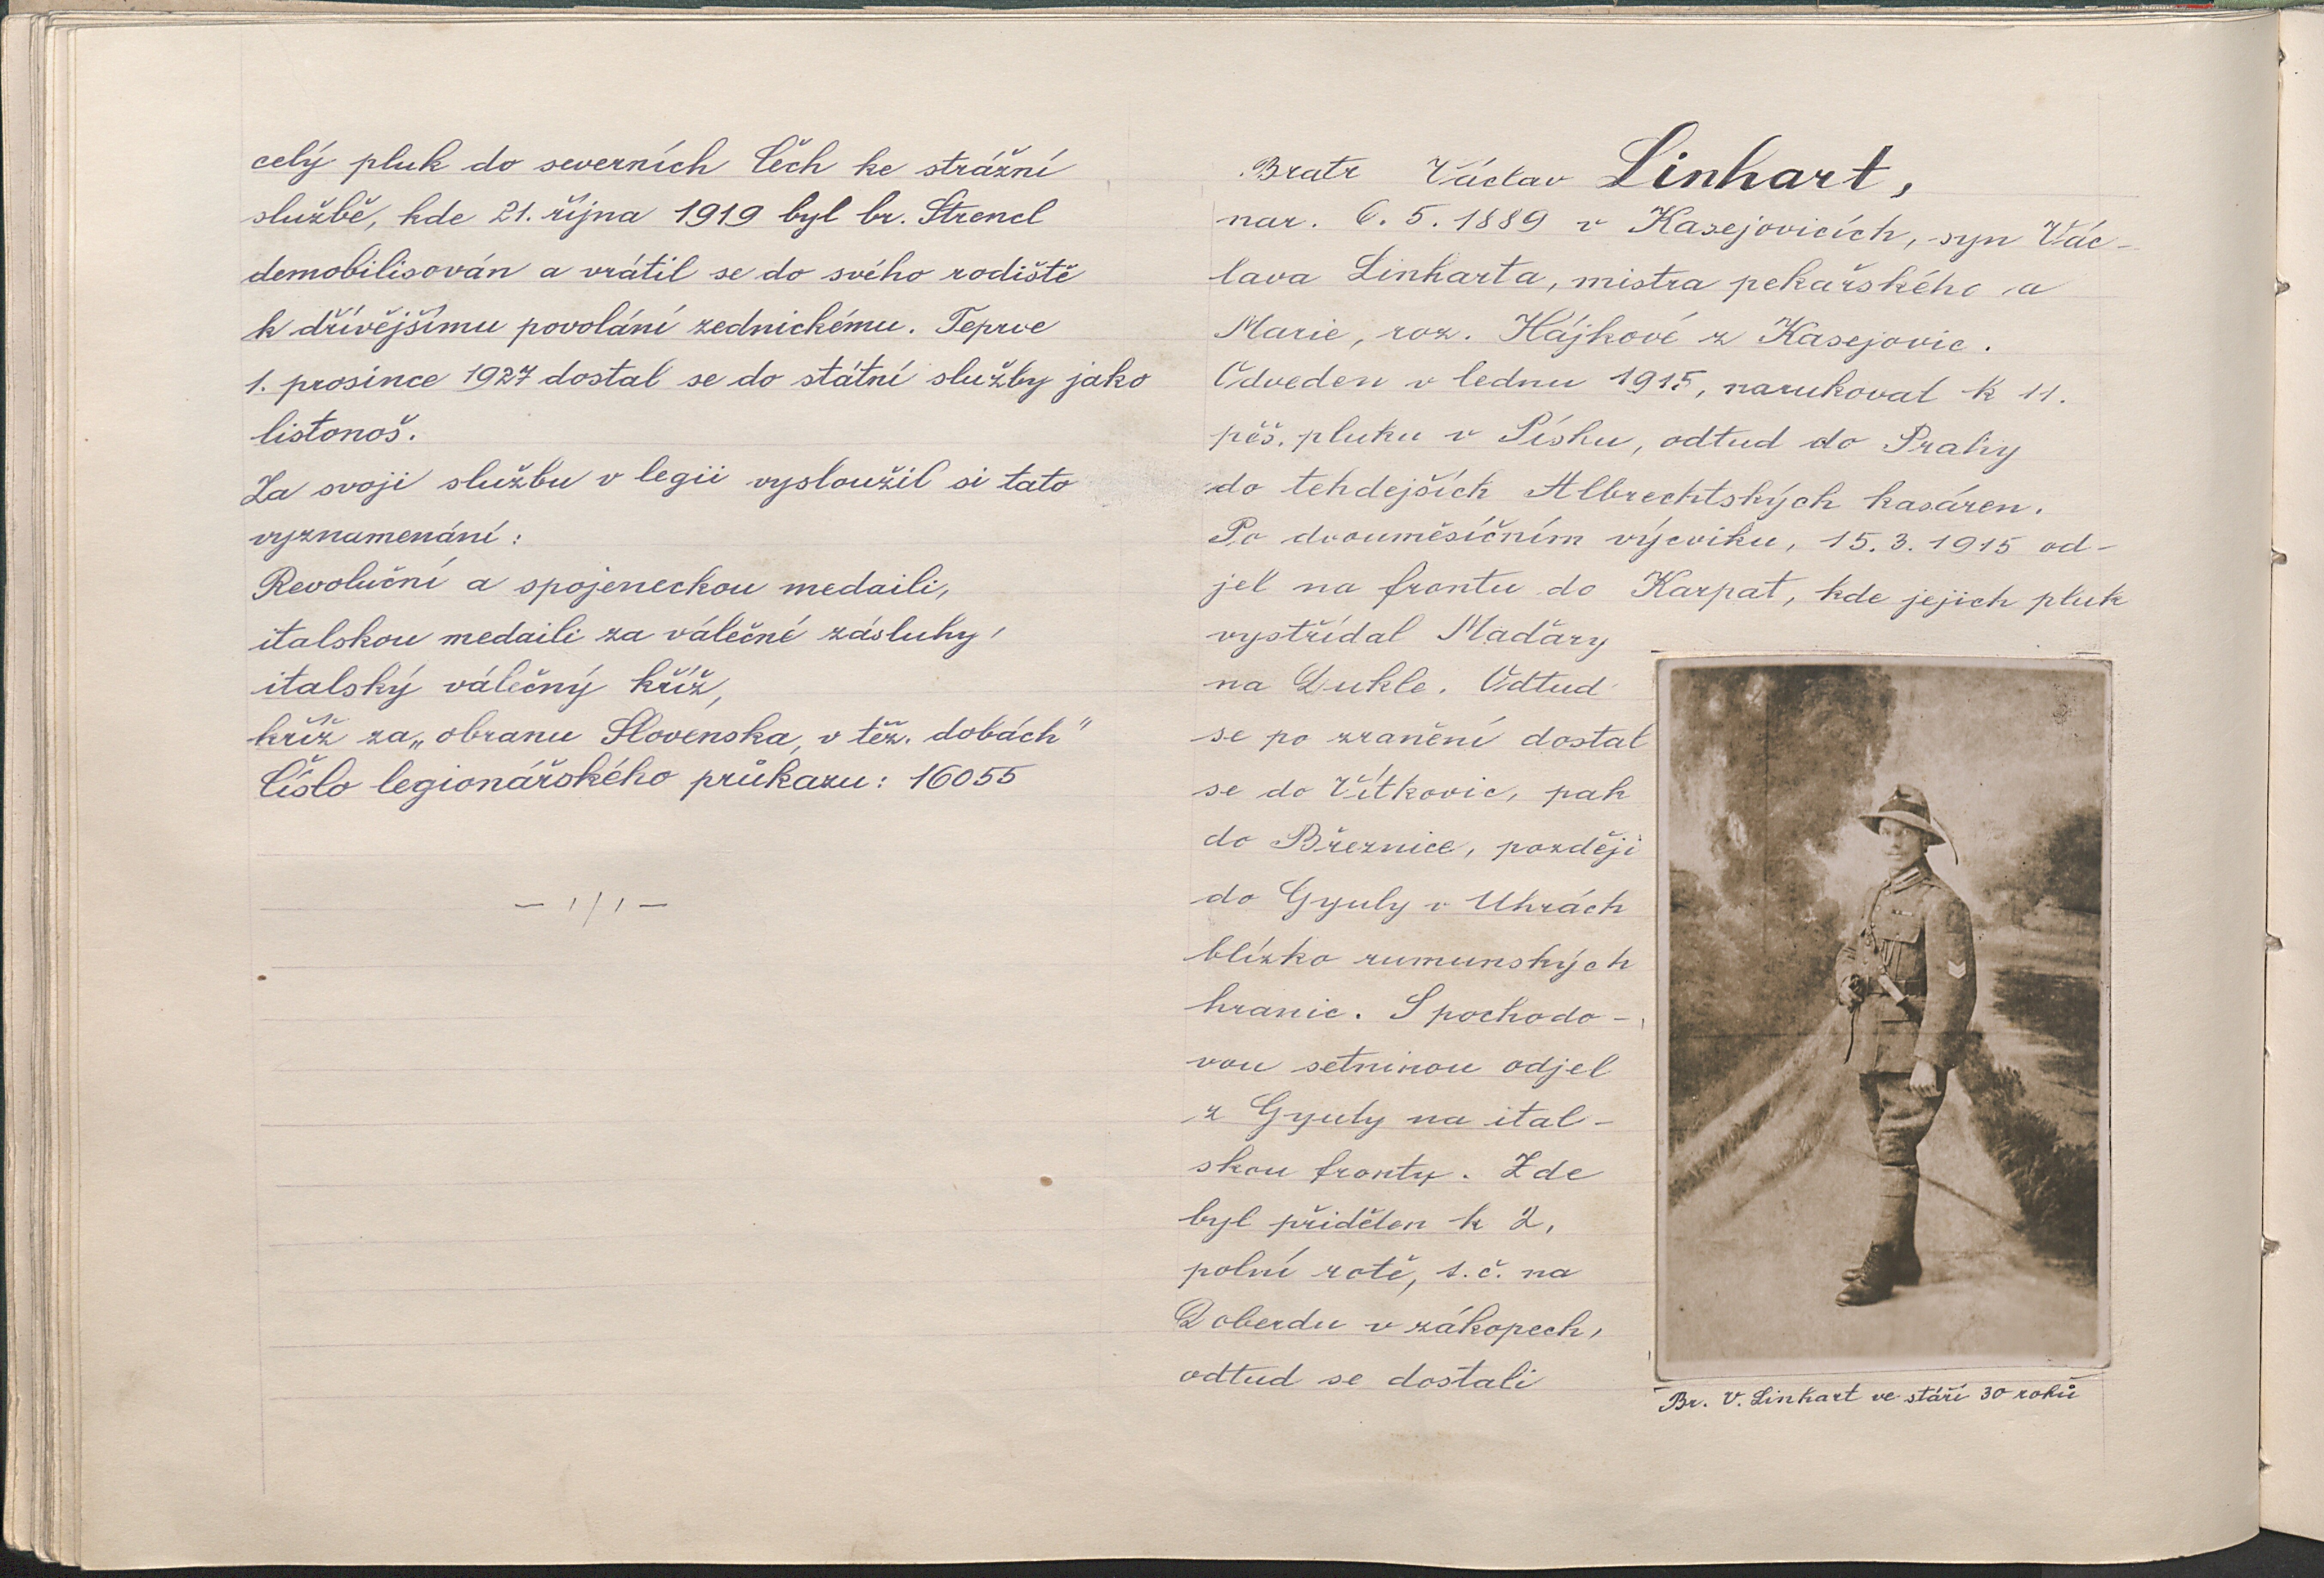 celý pluk do severních Čech ke strážní
službě, kde 21. října 1919 byl br. Strencl
demobilisován a vrátil se do svého rodiště
k dřívějšímu povolání zednickému. Teprve
1. prosince 1927 dostal se do státní služby jako
listonoš.
Za svoji službu v legii vysloužil si tato
vyznamenání:
Revoluční a spojeneckou medaili,
italskou medaili za válečné zásluhy,
italský válečný kříž,
kříž za „obranu Slovenska, v těž. dobách"
Číslo legionářského průkazu: 16055
Bratr Václav Linhart,
nar. 6. 5. 1889 v Kasejovicích, syn Vác-
lava Linharta, mistra pekařského a
Marie, roz. Hájkové z Kasejovic.
Odveden v lednu 1915, narukoval k 11.
pěš. pluku v Písku, odtud do Prahy
do tehdejších Albrechtských kasáren.
Po dvouměsíčním výcviku, 15. 3. 1915 od-
jel na frontu do Karpat, kde jejich pluk
vystřídal Maďary
na Dukle. Odtud
se po zranění dostal
se do Vítkovic, pak
do Březnice, později
do Gyuly v Uhrách
blízko rumunských
hranic. S pochodo-
vou setninou odjel
z Gyuly na ital-
skou fronty. Zde
byl přidělen k 2.
polní rotě, t. č. na
Doberdu v zákopech,
odtud se dostali
Br. V. Linhart ve stáří 30 roků